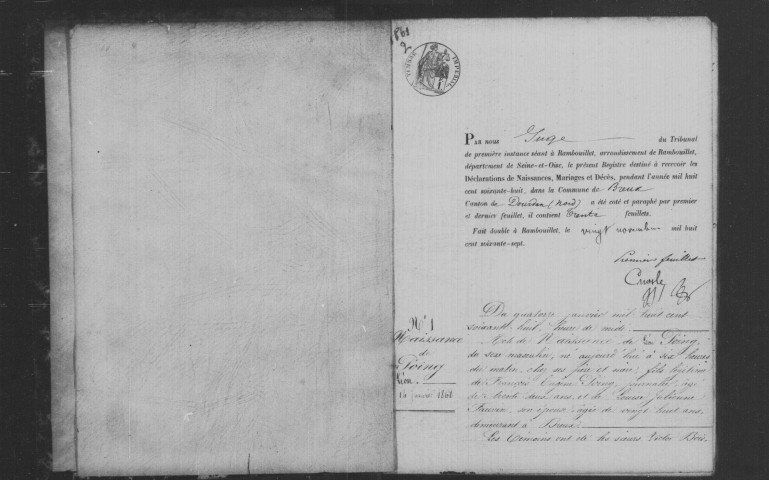 1868
2
TIMBRE IMPERIAL
PAR nous Juge du Tribunal
de première instance séant à Rambouillet, arrondissement de Rambouillet,
département de Seine-et-Oise, le présent Registre destiné à recevoir les
Déclarations de Naissances, Mariages et Décès, pendant l'année mil huit
cent soixante-huit, dans la Commune de Breux
Canton de Dourdan (nord) a été coté et paraphé par premier
et dernier feuillet, il contient trente feuillets.
Fait double à Rambouillet, le vingt novembre mil huit
cent soixante-sept.
Premier feuillet
Du quatorze janvier mil huit cent
soixante huit, heure de midi.
N° 1
Naissance
de
Poing
Léon.
14 janv 1868
Acte de Naissance de Léon Poing,
du sexe masculin, né aujourd'hui à six heures
du matin, chez ses père et mère, fils légitime
de François Eugène Poing, journalier, âgé
de trente deux ans, et de Louise Julienne
son épouse, âgée de vingt huit ans,
demeurant à Breux.
Les témoins ont été les sieurs Victor